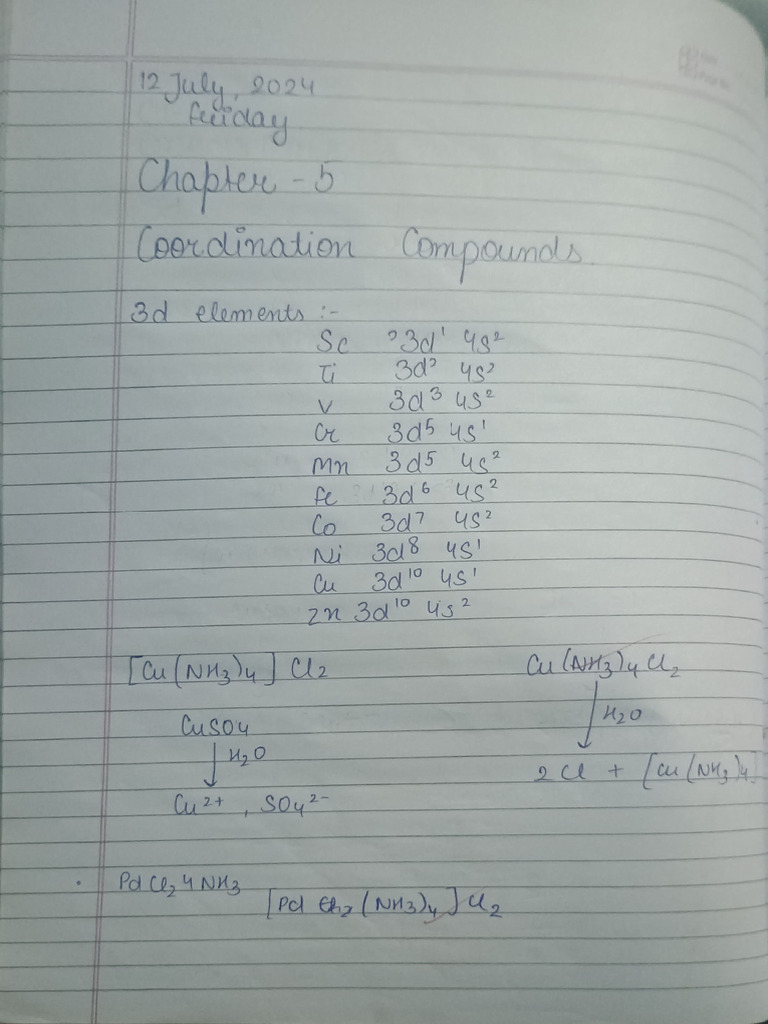 12 July, 2024
Friday
Chapter - 5
Coordination Compounds.
3d elements :-
Sc 3d¹ 4s²
Ti 3d² 4s²
V 3d³ 4s²
Cr 3d⁵ 4s¹
Mn 3d⁵ 4s²
Fe 3d⁶ 4s²
Co 3d⁷ 4s²
Ni 3d⁸ 4s¹
Cu 3d¹⁰ 4s¹
Zn 3d¹⁰ 4s²
[Cu(NH₃)₄] Cl₂ Cu(NH₃)₄Cl₂
CuSO₄ ↓ H₂O
↓ H₂O 2Cl + [Cu(NH₃)₄]
Cu²⁺, SO₄²⁻
. PdCl₂4NH₃
[Pd (NH₃)₄]Cl₂